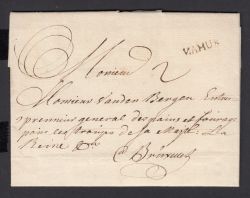 NAMUR
Monsieur 2
Monsieur Vanden Bergen Entre
preneur general des pains et fourage
pour les troupes de sa Majté. La
Reine &a
à Bruxelles